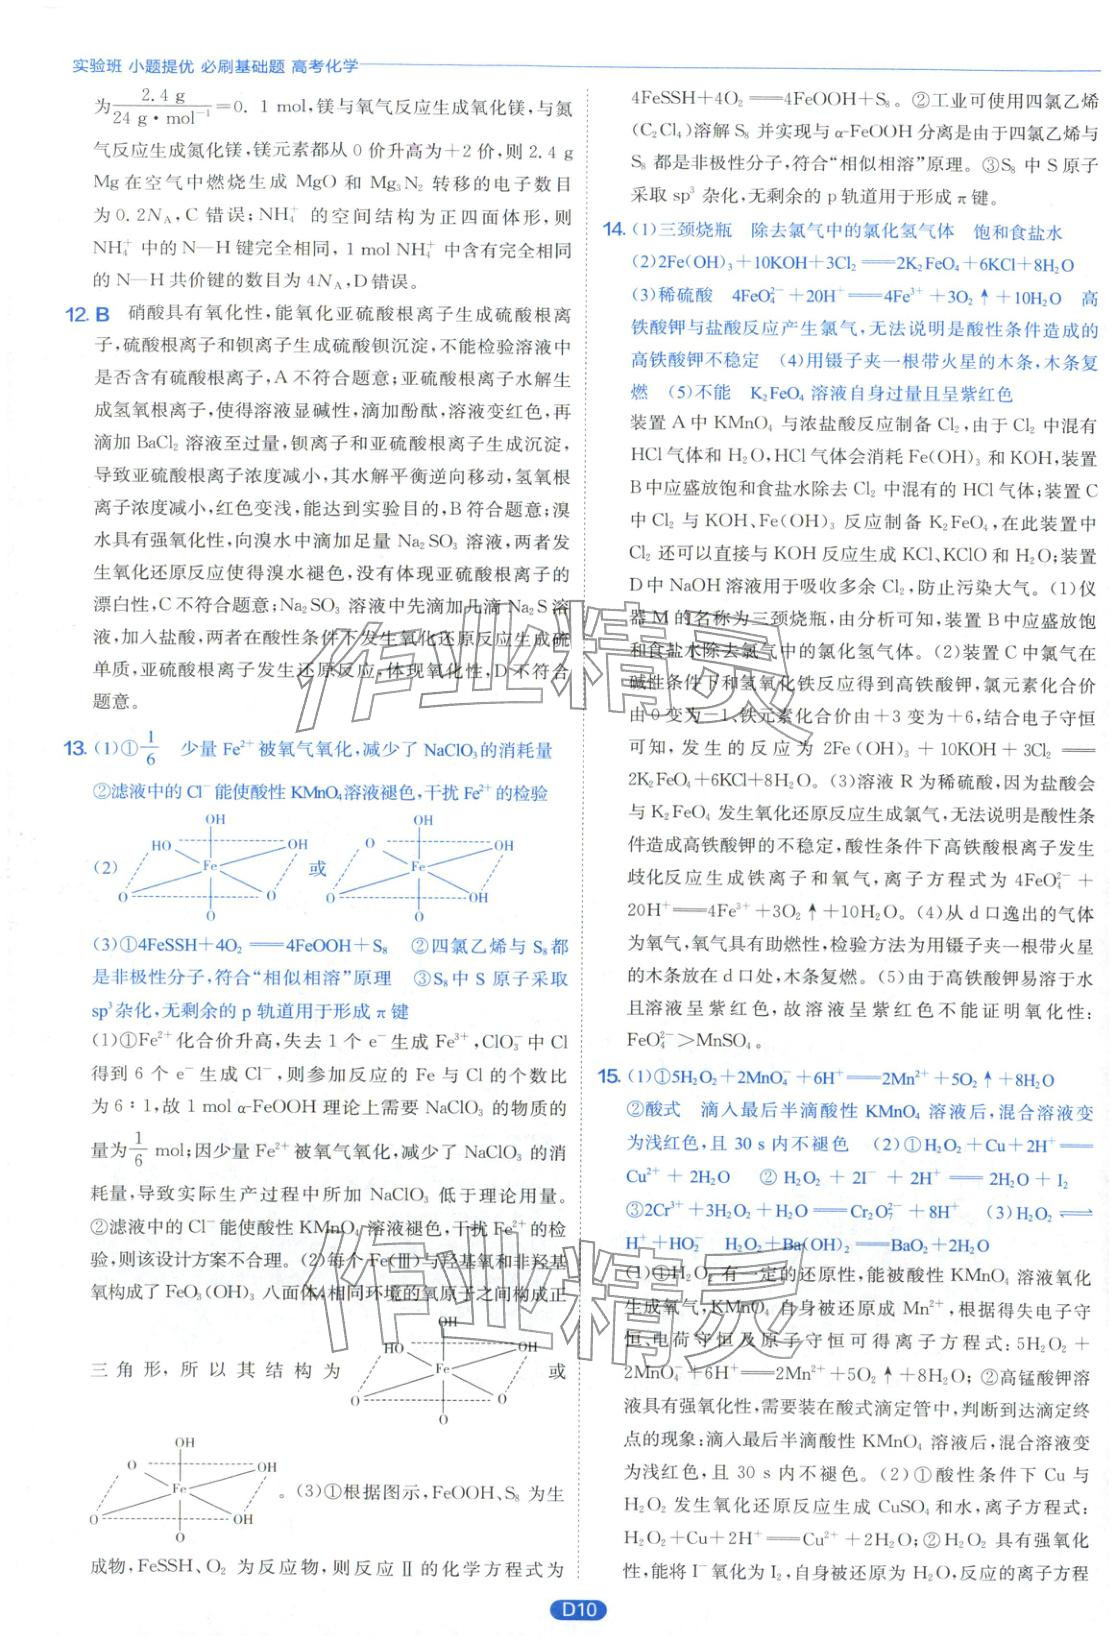 实验班 小题提优 必刷基础题 高考化学
为2.4 g/24 g·mol⁻¹=0.1 mol,镁与氧气反应生成氧化镁,与氮
气反应生成氮化镁,镁元素都从0价升高为+2价,则2.4 g
Mg在空气中燃烧生成MgO和Mg₃N₂转移的电子数目
为0.2Nₐ,C错误;NH₄⁺的空间结构为正四面体形,则
NH₄⁺中的N—H键完全相同,1 mol NH₄⁺中含有完全相同
的N—H共价键的数目为4Nₐ,D错误。
12. B 硝酸具有氧化性,能氧化亚硫酸根离子生成硫酸根离
子,硫酸根离子和钡离子生成硫酸钡沉淀,不能检验溶液中
是否含有硫酸根离子,A不符合题意;亚硫酸根离子水解生
成氢氧根离子,使得溶液显碱性,滴加酚酞,溶液变红色,再
滴加BaCl₂溶液至过量,钡离子和亚硫酸根离子生成沉淀,
导致亚硫酸根离子浓度减小,其水解平衡逆向移动,氢氧根
离子浓度减小,红色变浅,能达到实验目的,B符合题意;溴
水具有强氧化性,向溴水中滴加足量Na₂SO₃溶液,两者发
生氧化还原反应使得溴水褪色,没有体现亚硫酸根离子的
漂白性,C不符合题意;Na₂SO₃溶液中先滴加几滴Na₂S溶
液,加入盐酸,两者在酸性条件下发生氧化还原反应生成硫
单质,亚硫酸根离子发生还原反应,体现氧化性,D不符合
题意。
13. (1)①1/6 少量Fe²⁺被氧气氧化,减少了NaClO₃的消耗量
②滤液中的Cl⁻能使酸性KMnO₄溶液褪色,干扰Fe²⁺的检验
OH OH
HO OH O OH
(2) Fe 或 Fe
O O O OH
O O
(3)①4FeSSH+4O₂══4FeOOH+S₈ ②四氯乙烯与S₈都
是非极性分子,符合“相似相溶”原理 ③S₈中S原子采取
sp³杂化,无剩余的p轨道用于形成π键
(1)①Fe²⁺化合价升高,失去1个e⁻生成Fe³⁺,ClO₃⁻中Cl
得到6个e⁻生成Cl⁻,则参加反应的Fe与Cl的个数比
为6∶1,故1 mol α-FeOOH理论上需要NaClO₃的物质的
量为1/6 mol;因少量Fe²⁺被氧气氧化,减少了NaClO₃的消
耗量,导致实际生产过程中所加NaClO₃低于理论用量。
②滤液中的Cl⁻能使酸性KMnO₄溶液褪色,干扰Fe²⁺的检
验,则该设计方案不合理。(2)每个Fe(Ⅲ)与羟基氧和非羟基
氧构成了FeO₃(OH)₃八面体,相同环境的氧原子之间构成正
OH
HO OH
三角形,所以其结构为 Fe 或
O O
O
OH
O OH
Fe 。(3)①根据图示,FeOOH、S₈为生
O OH
O
成物,FeSSH、O₂为反应物,则反应Ⅱ的化学方程式为
4FeSSH+4O₂══4FeOOH+S₈。②工业可使用四氯乙烯
(C₂Cl₄)溶解S₈并实现与α-FeOOH分离是由于四氯乙烯与
S₈都是非极性分子,符合“相似相溶”原理。③S₈中S原子
采取sp³杂化,无剩余的p轨道用于形成π键。
14. (1)三颈烧瓶 除去氯气中的氯化氢气体 饱和食盐水
(2)2Fe(OH)₃+10KOH+3Cl₂══2K₂FeO₄+6KCl+8H₂O
(3)稀硫酸 4FeO₄²⁻+20H⁺══4Fe³⁺+3O₂↑+10H₂O 高
铁酸钾与盐酸反应产生氯气,无法说明是酸性条件造成的
高铁酸钾不稳定 (4)用镊子夹一根带火星的木条,木条复
燃 (5)不能 K₂FeO₄溶液自身过量且呈紫红色
装置A中KMnO₄与浓盐酸反应制备Cl₂,由于Cl₂中混有
HCl气体和H₂O,HCl气体会消耗Fe(OH)₃和KOH,装置
B中应盛放饱和食盐水除去Cl₂中混有的HCl气体;装置C
中Cl₂与KOH、Fe(OH)₃反应制备K₂FeO₄,在此装置中
Cl₂还可以直接与KOH反应生成KCl、KClO和H₂O;装置
D中NaOH溶液用于吸收多余Cl₂,防止污染大气。(1)仪
器M的名称为三颈烧瓶,由分析可知,装置B中应盛放饱
和食盐水除去氯气中的氯化氢气体。(2)装置C中氯气在
碱性条件下和氢氧化铁反应得到高铁酸钾,氯元素化合价
由0变为-1、铁元素化合价由+3变为+6,结合电子守恒
可知,发生的反应为2Fe(OH)₃+10KOH+3Cl₂══
2K₂FeO₄+6KCl+8H₂O。(3)溶液R为稀硫酸,因为盐酸会
与K₂FeO₄发生氧化还原反应生成氯气,无法说明是酸性条
件造成高铁酸钾的不稳定,酸性条件下高铁酸根离子发生
歧化反应生成铁离子和氧气,离子方程式为4FeO₄²⁻+
20H⁺══4Fe³⁺+3O₂↑+10H₂O。(4)从d口逸出的气体
为氧气,氧气具有助燃性,检验方法为用镊子夹一根带火星
的木条放在d口处,木条复燃。(5)由于高铁酸钾易溶于水
且溶液呈紫红色,故溶液呈紫红色不能证明氧化性:
FeO₄²⁻>MnSO₄。
15. (1)①5H₂O₂+2MnO₄⁻+6H⁺══2Mn²⁺+5O₂↑+8H₂O
②酸式 滴入最后半滴酸性KMnO₄溶液后,混合溶液变
为浅红色,且30 s内不褪色 (2)①H₂O₂+Cu+2H⁺══
Cu²⁺+2H₂O ②H₂O₂+2I⁻+2H⁺══2H₂O+I₂
③2Cr³⁺+3H₂O₂+H₂O══Cr₂O₇²⁻+8H⁺ (3)H₂O₂⇌
H⁺+HO₂⁻ H₂O₂+Ba(OH)₂══BaO₂+2H₂O
(1)①H₂O₂有一定的还原性,能被酸性KMnO₄溶液氧化
生成氧气,KMnO₄自身被还原成Mn²⁺,根据得失电子守
恒、电荷守恒及原子守恒可得离子方程式:5H₂O₂+
2MnO₄⁻+6H⁺══2Mn²⁺+5O₂↑+8H₂O;②高锰酸钾溶
液具有强氧化性,需要装在酸式滴定管中,判断到达滴定终
点的现象:滴入最后半滴酸性KMnO₄溶液后,混合溶液变
为浅红色,且30 s内不褪色。(2)①酸性条件下Cu与
H₂O₂发生氧化还原反应生成CuSO₄和水,离子方程式:
H₂O₂+Cu+2H⁺══Cu²⁺+2H₂O;②H₂O₂具有强氧化
性,能将I⁻氧化为I₂,自身被还原为H₂O,反应的离子方程
D10
作业精灵
作业精灵